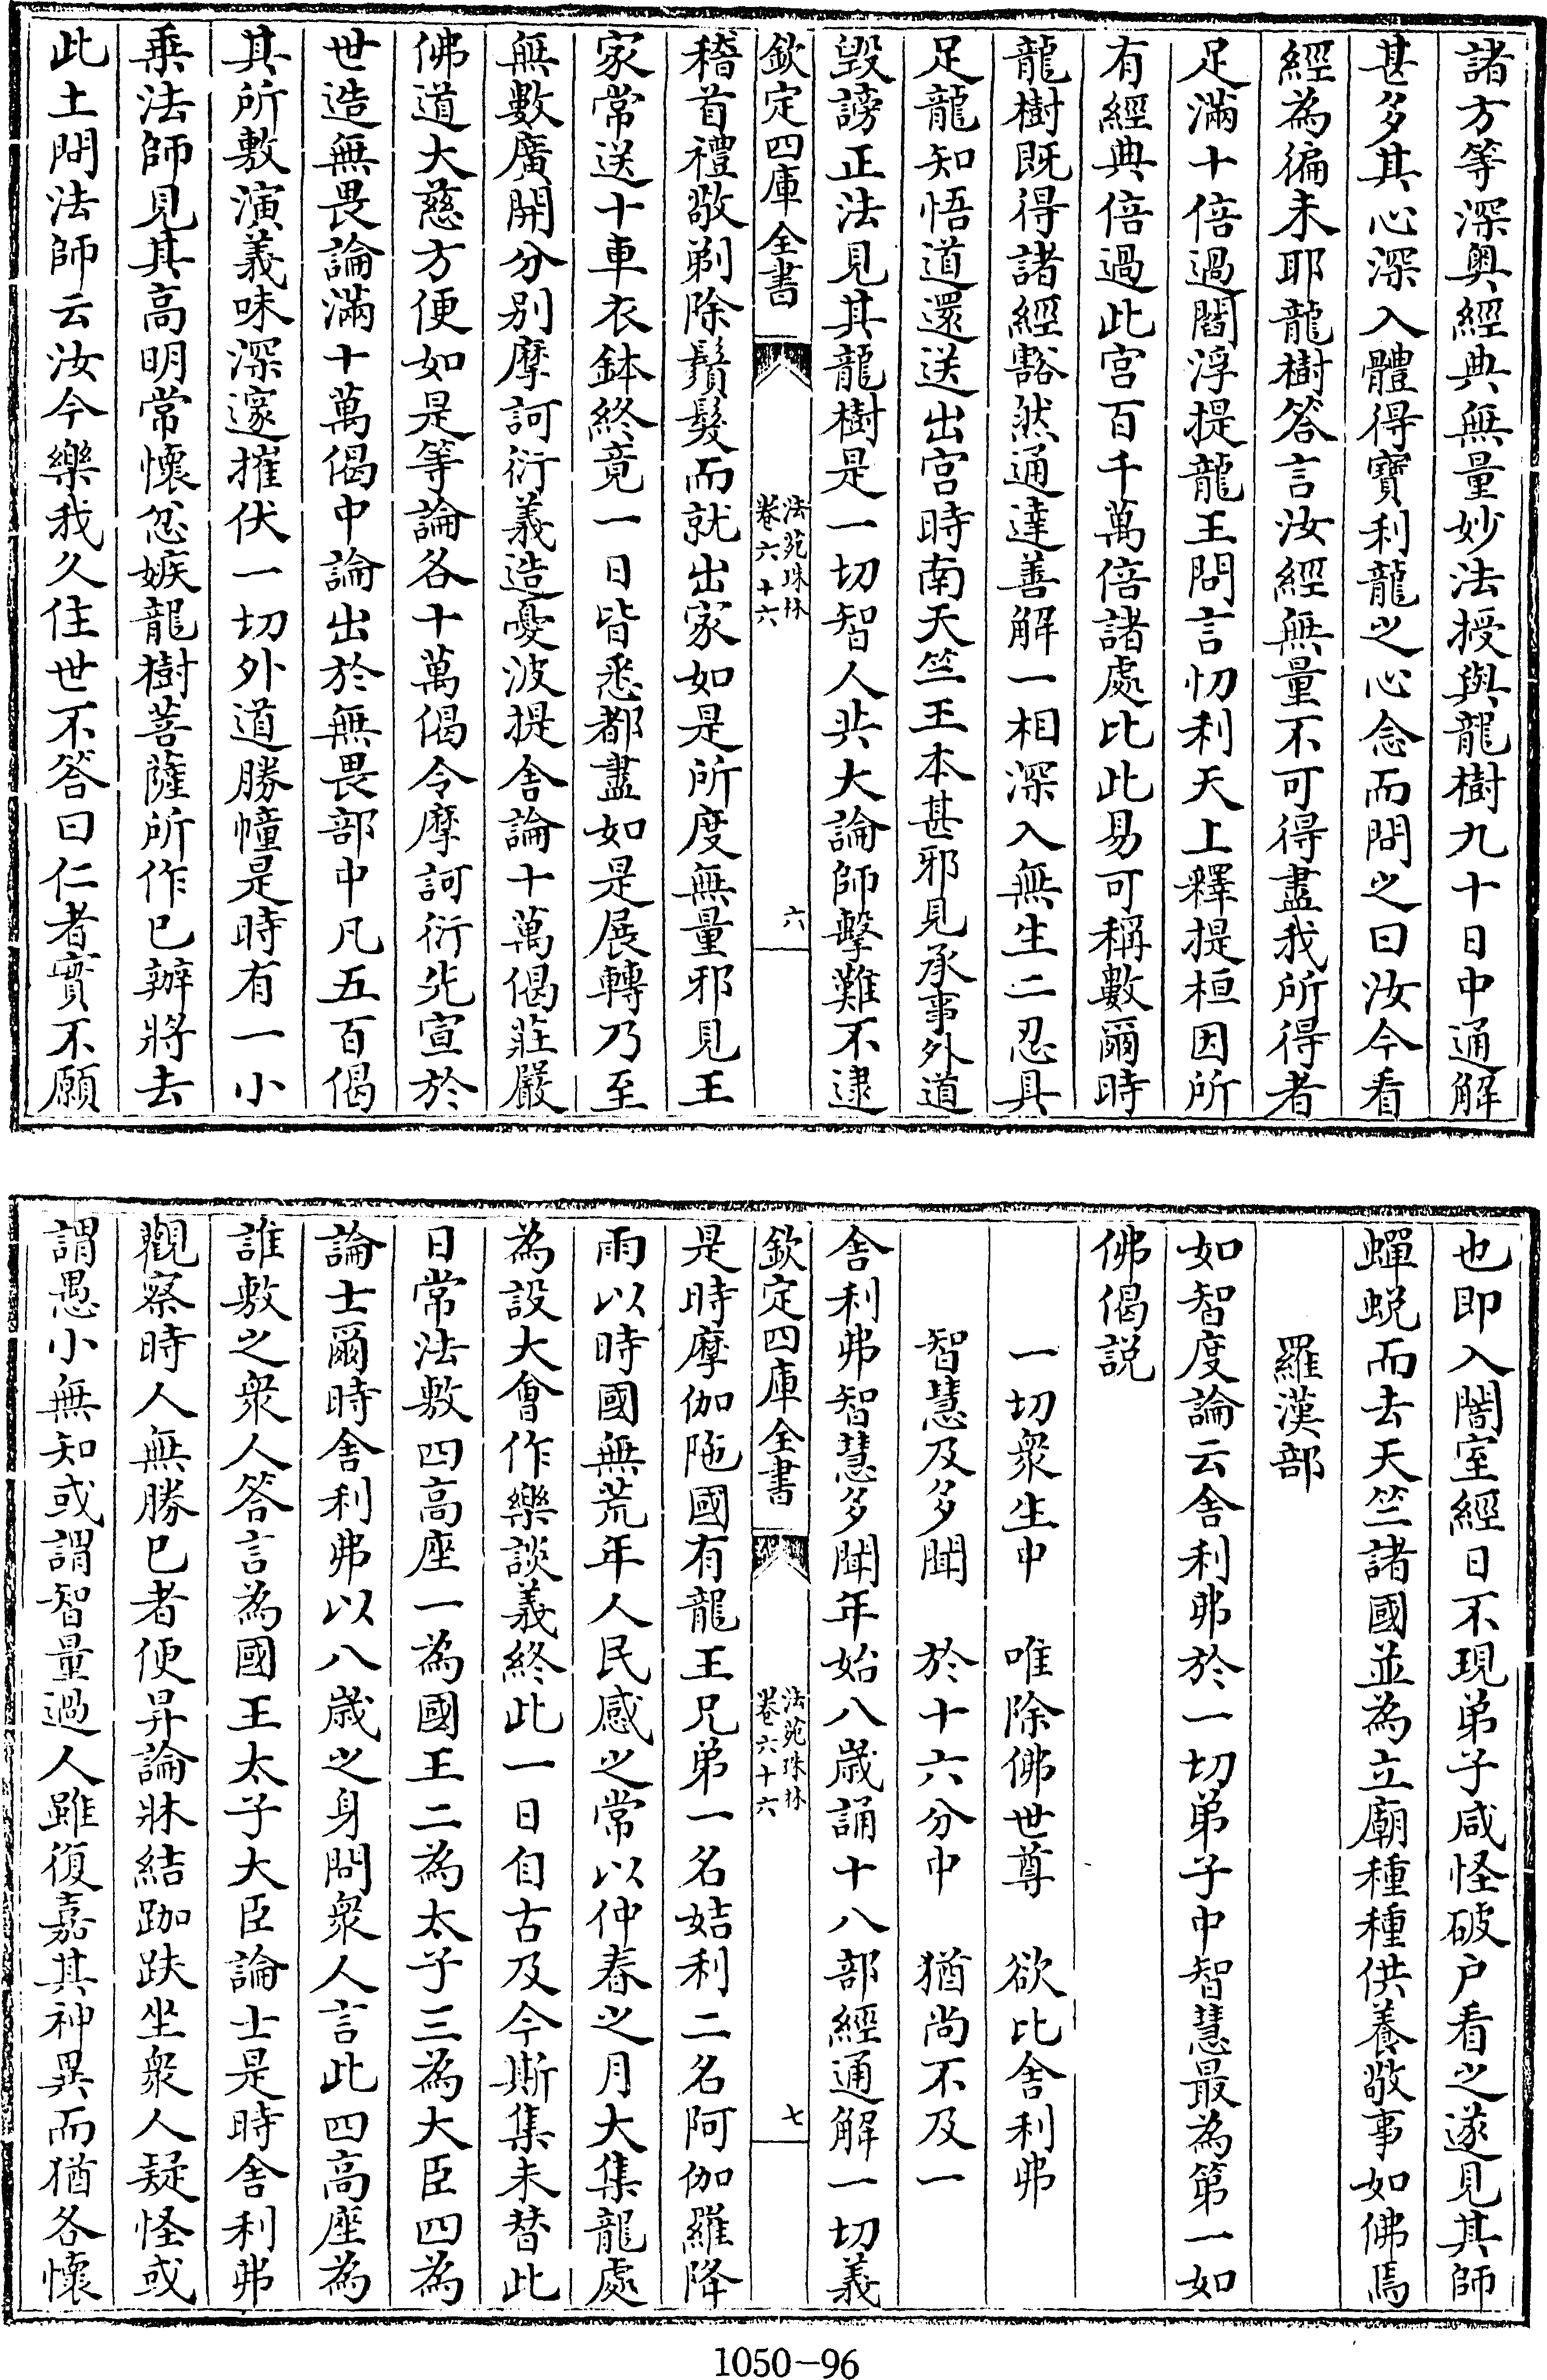 諸方等深奥經典無量妙法授與龍樹九十日中通解
甚多其心深入體得寶利龍之心念而問之曰汝今看
經為徧未耶龍樹答言汝經無量不可得盡我所得者
足滿十倍過閻浮提龍王問言忉利天上釋提桓因所
有經典倍過此宫百千萬倍諸處比此易可稱數爾時
龍樹既得諸經豁然通達善解一相深入無生二忍具
足龍知悟道還送出宫時南天竺王本甚邪見承事外道
毁謗正法見其龍樹是一切智人共大論師擊難不逮
欽定四庫全書
法苑珠林
卷六十六
六
稽首禮敬剃除鬚髮而就出家如是所度無量邪見王
家常送十車衣鉢終竟一日皆悉都盡如是展轉乃至
無數廣開分别摩訶衍義造憂波提舍論十萬偈莊嚴
佛道大慈方便如是等論各十萬偈令摩訶衍光宣於
世造無畏論滿十萬偈中論出於無畏部中凡五百偈
其所敷演義味深邃摧伏一切外道勝幢是時有一小
乗法師見其高明常懷忿嫉龍樹菩薩所作已辦將去
此土問法師云汝今樂我久住世不答曰仁者實不願
也即入闇室經日不現弟子咸怪破户看之遂見其師
蟬蜕而去天竺諸國並為立廟種種供養敬事如佛焉
羅漢部
如智度論云舍利弗於一切弟子中智慧最為第一如
佛偈説
一切衆生中　唯除佛世尊　欲比舍利弗
智慧及多聞　於十六分中　猶尚不及一
舍利弗智慧多聞年始八歲誦十八部經通解一切義
欽定四庫全書
法苑珠林
卷六十六
七
是時摩伽陁國有龍王兄弟一名姞利二名阿伽羅降
雨以時國無荒年人民感之常以仲春之月大集龍處
為設大會作樂談義終此一日自古及今斯集未替此
日常法敷四高座一為國王二為太子三為大臣四為
論士爾時舍利弗以八歲之身問衆人言此四高座為
誰敷之衆人答言為國王太子大臣論士是時舍利弗
觀察時人無勝已者便昇論牀結跏趺坐衆人疑怪或
謂愚小無知或謂智量過人雖復嘉其神異而猶各懷
1050-96